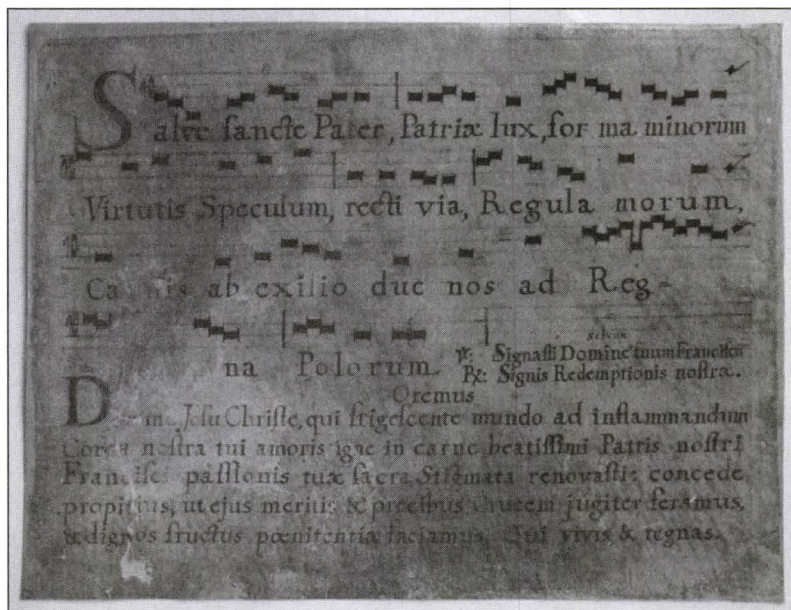 Salve sancte Pater, Patriæ lux, for ma minorum
Virtutis Speculum, recti via, Regula morum.
Carnis ab exilio duc nos ad Reg-
na Polorum.
℣: Signasti Domine tuum Francisc
℟: Signis Redemptionis nostræ.
Oremus
Domine Jesu Christe, qui frigescente mundo ad inflammandum
Corda nostra tui amoris igne in carne beatissimi Patris nostri
Francisci passionis tuæ sacra Stigmata renovastis: concede
propitius, ut ejus meritis & precibus Crucem jugiter feramus,
& dignos fructus pœnitentiæ faciamus. Qui vivis & regnas.